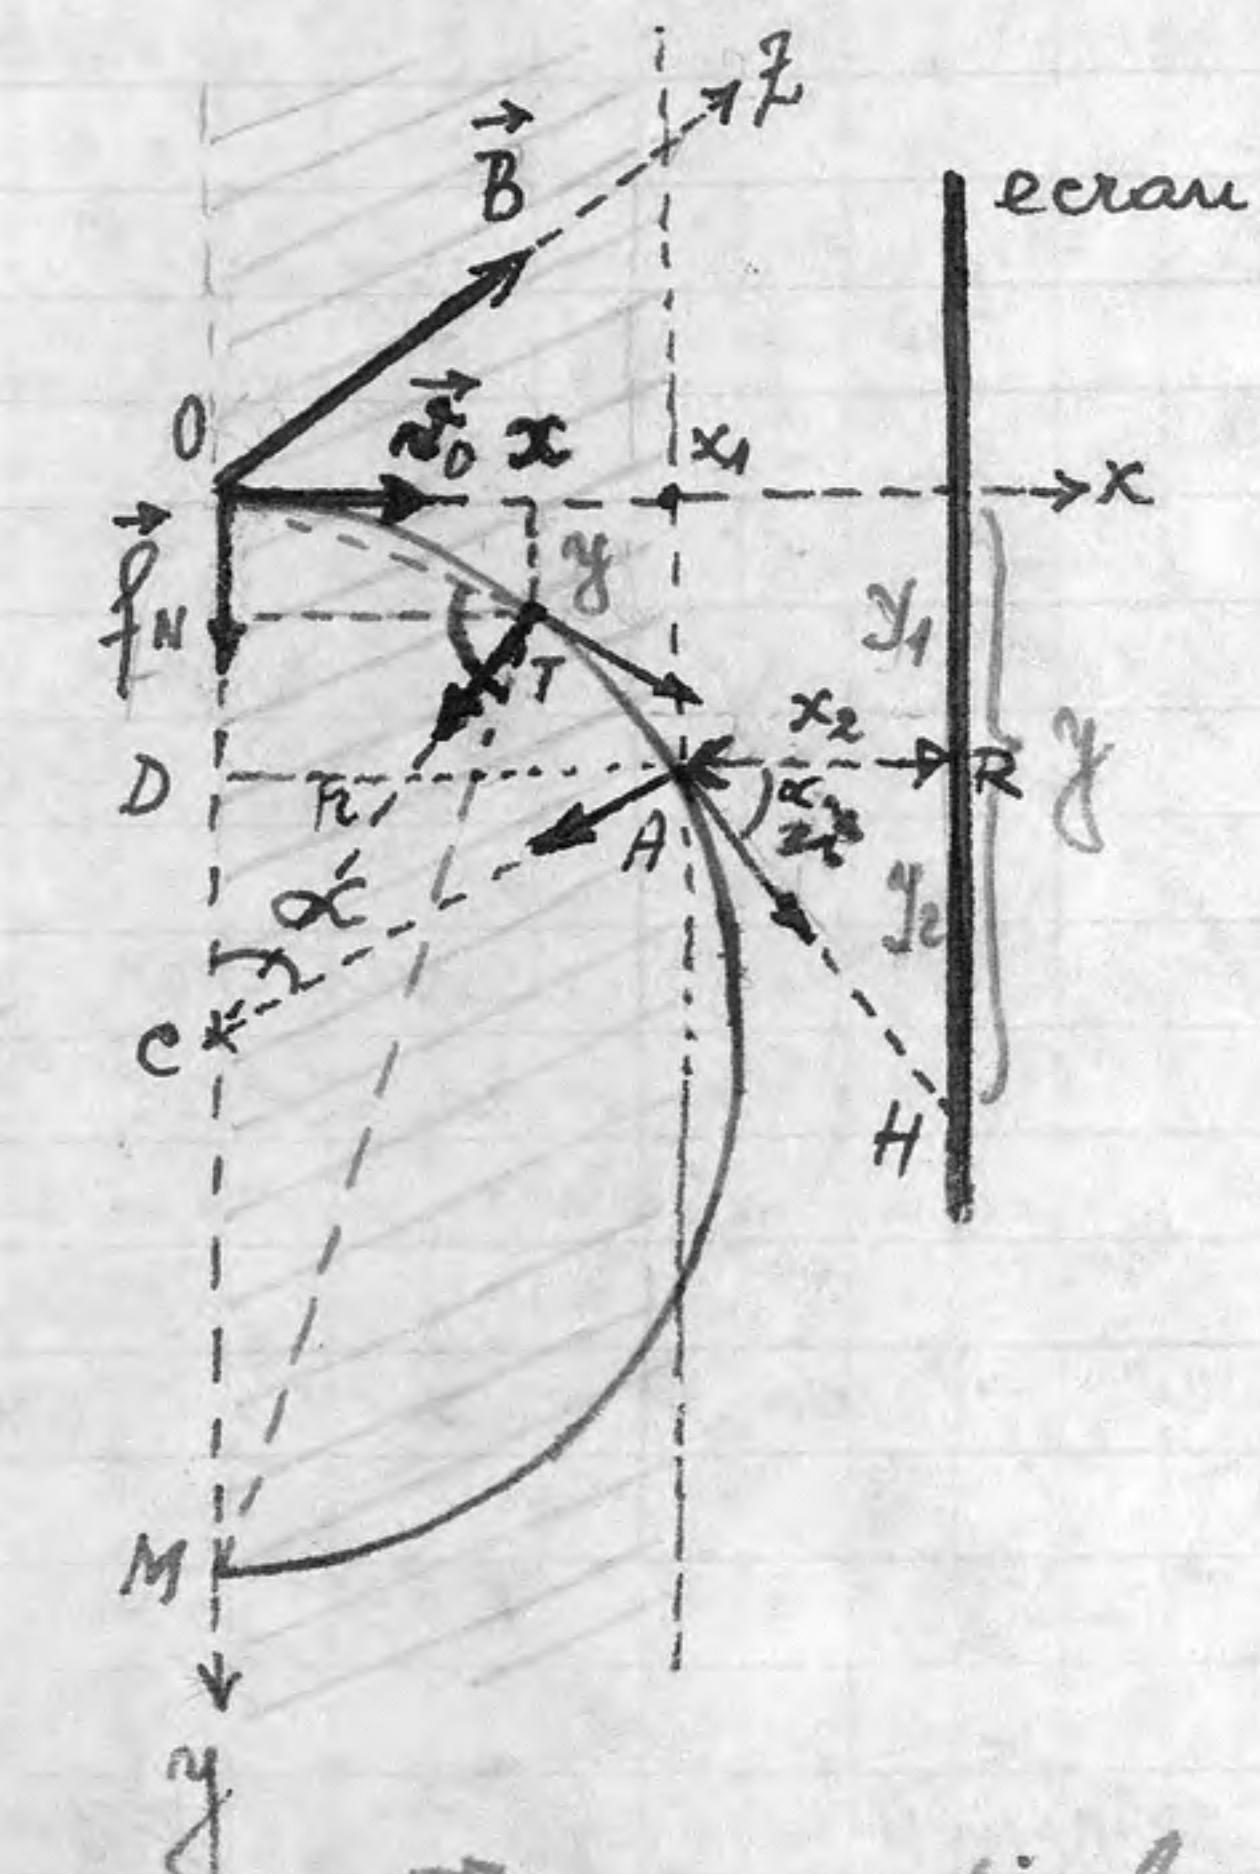 Z
B
ecran
O
v₀
x
x₁
x
f
N
y
y₁
T
D
x₂
R
y
R
A
α
y₂
α
C
H
M
y